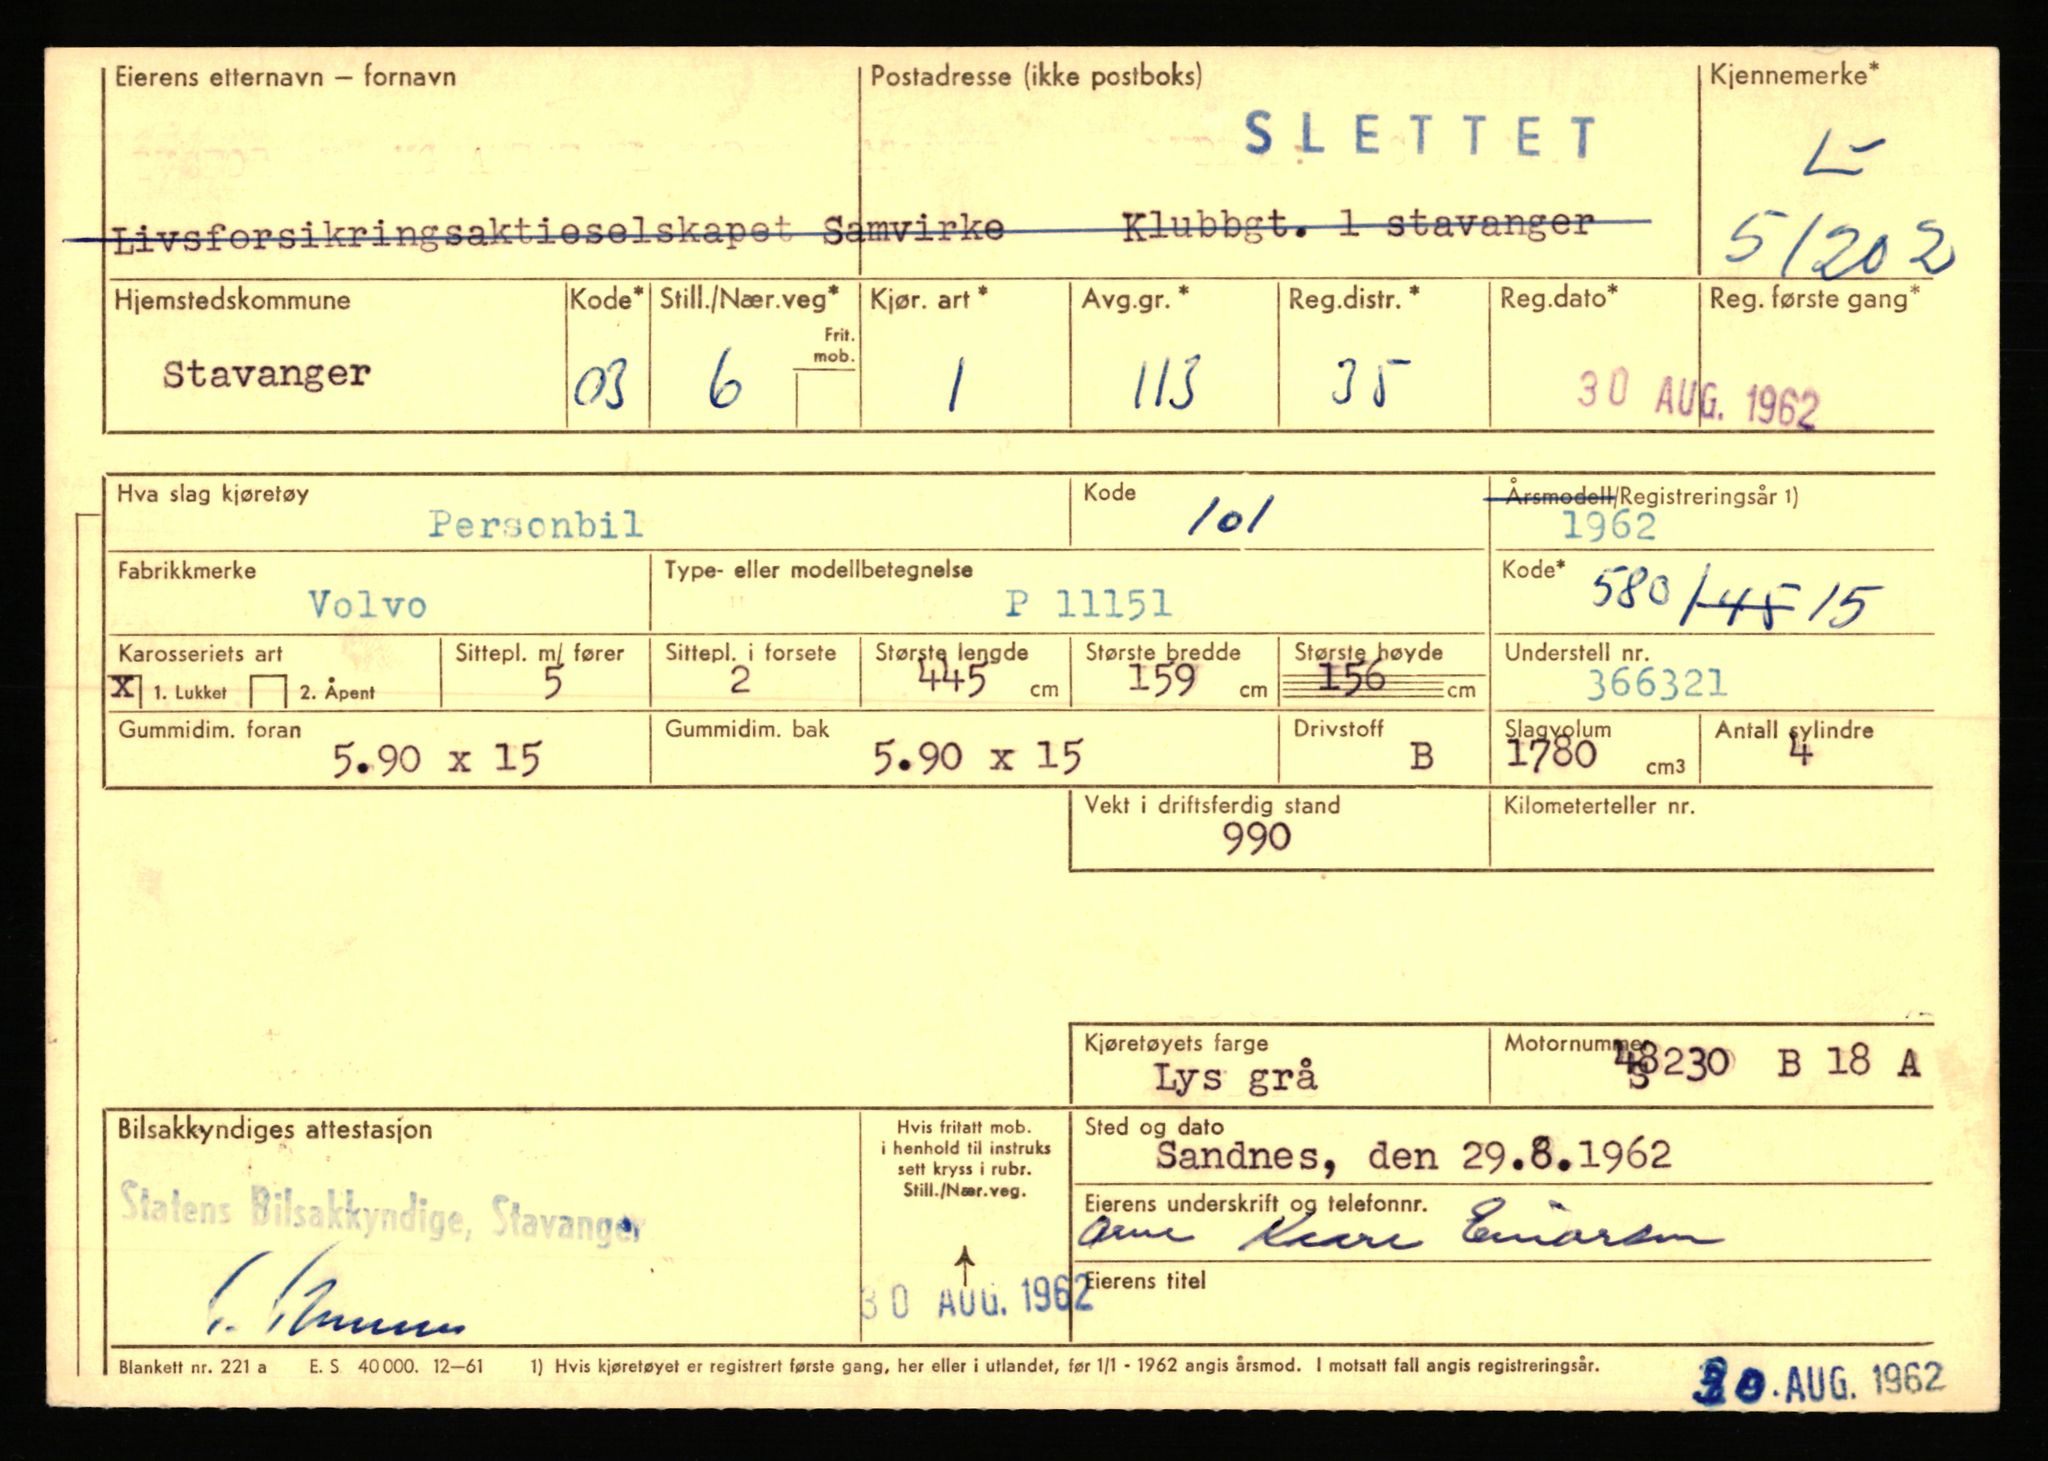 Eierens etternavn – fornavn
Postadresse (ikke postboks)
Kjennemerke*
SLETTET
L-
51202
Livsforsikringsaktieselskapet Samvirke Klubbgt. 1 stavanger
Hjemstedskommune
Kode*
Still./Nær.veg*
Frit. mob.
Kjør. art *
Avg.gr. *
Reg.distr. *
Reg.dato*
Reg. første gang*
Stavanger
03
6
1
113
35
30 AUG. 1962
Hva slag kjøretøy
Personbil
Kode
101
Årsmodell/Registreringsår 1)
1962
Fabrikkmerke
Volvo
Type- eller modellbetegnelse
P 11151
Kode*
580/45 15
Karosseriets art
X 1. Lukket 2. Åpent
Sittepl. m/ fører
5
Sittepl. i forsete
2
Største lengde
445 cm
Største bredde
159 cm
Største høyde
156 cm
Understell nr.
366321
Gummidim. foran
5.90 x 15
Gummidim. bak
5.90 x 15
Drivstoff
B
Slagvolum
1780 cm3
Antall sylindre
4
Vekt i driftsferdig stand
990
Kilometerteller nr.
Kjøretøyets farge
Lys grå
Motornummer
48230 B 18 A
Bilsakkyndiges attestasjon
Statens Bilsakkyndige, Stavanger
Hvis fritatt mob.
i henhold til instruks
sett kryss i rubr.
Still./Nær.veg.
30 AUG. 1962
Sted og dato
Sandnes, den 29.8.1962
Eierens underskrift og telefonnr.
Arne Kaare Einarsen
Eierens titel
Blankett nr. 221 a E. S 40 000. 12–61 1) Hvis kjøretøyet er registrert første gang, her eller i utlandet, før 1/1 - 1962 angis årsmod. I motsatt fall angis registreringsår.
30. AUG. 1962